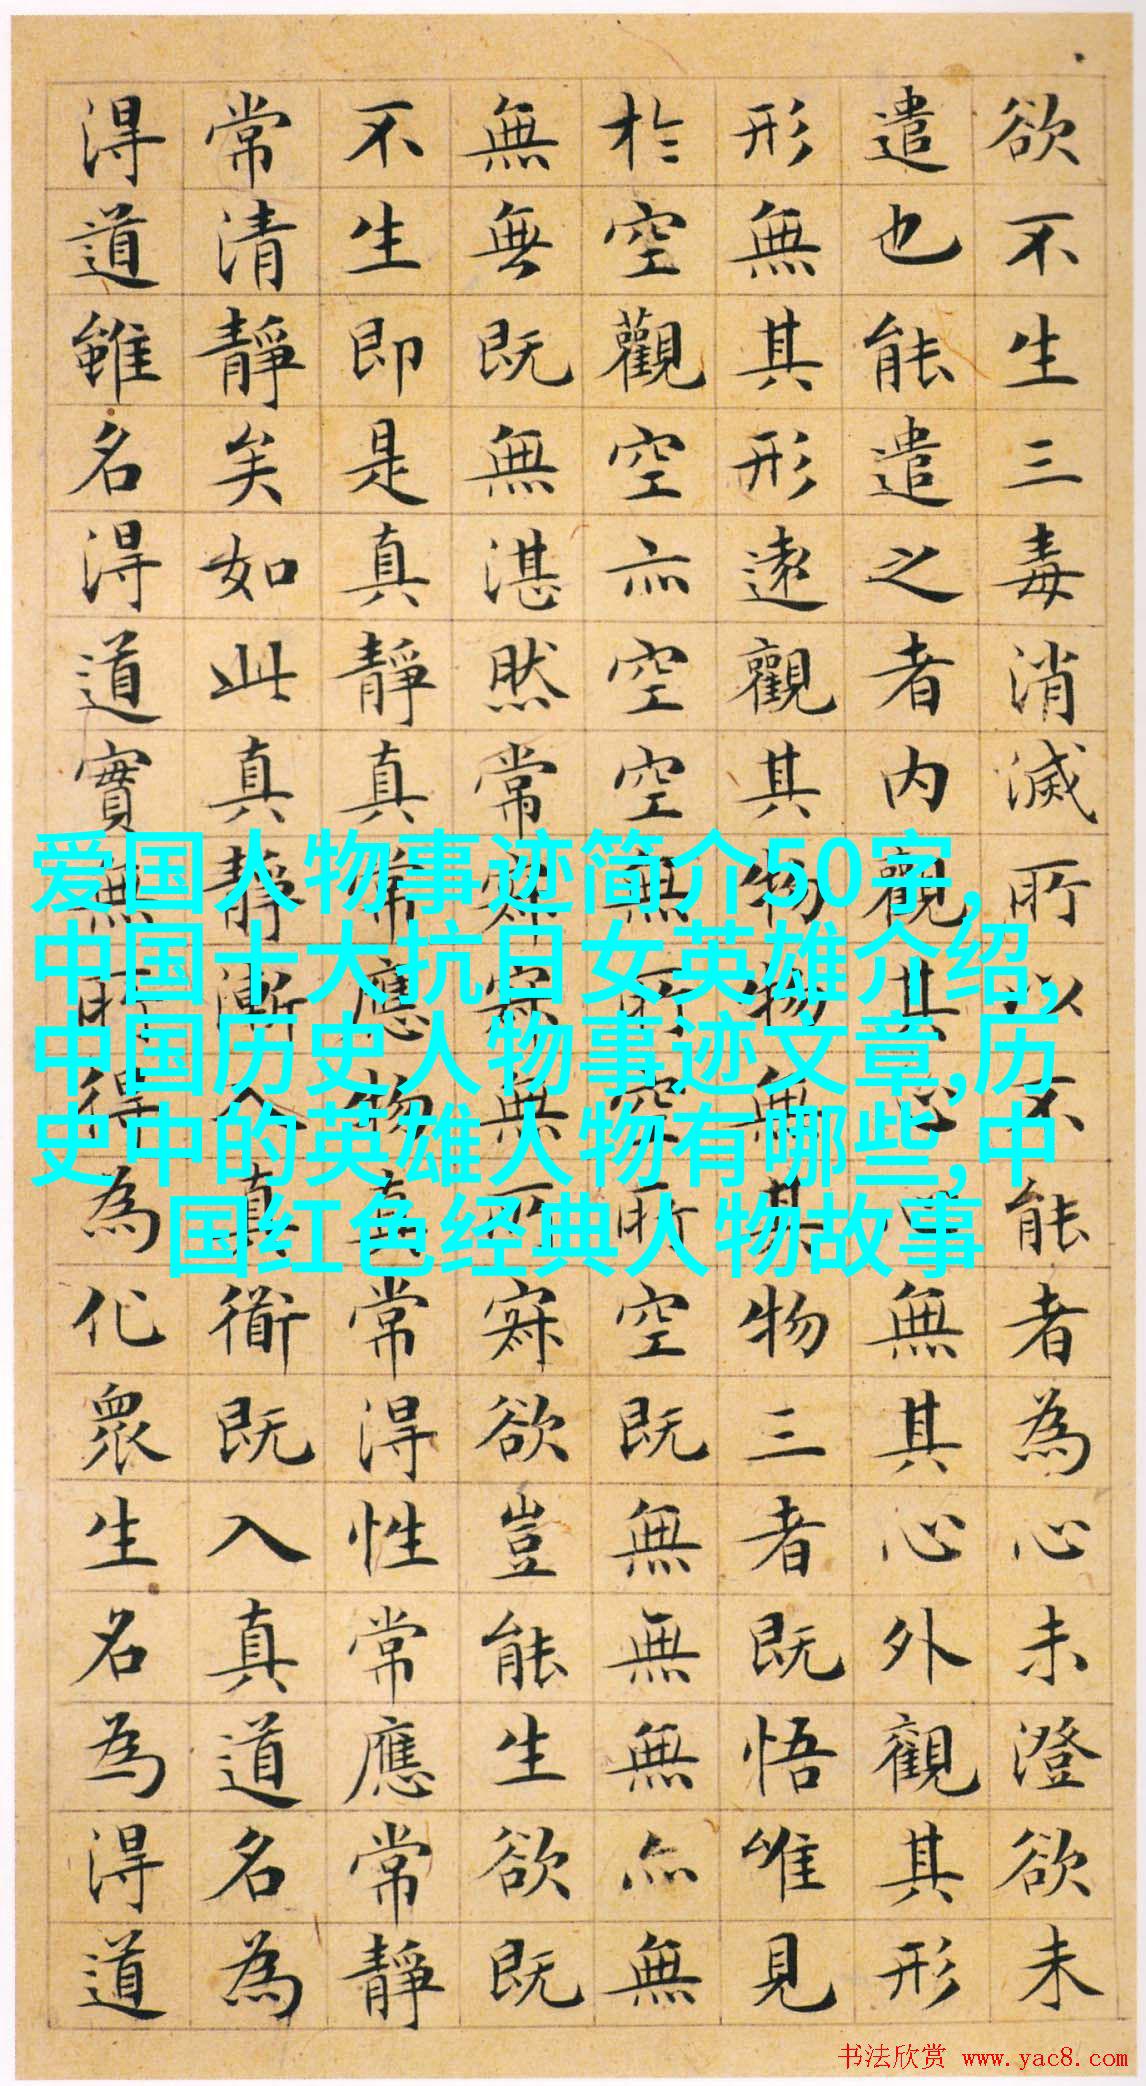 欲不生三毒消滅所以不能者為心未澄欲未
遣也能遣之者内觀其心心無其心外觀其形
形無其形遠觀其物物無其物三者既悟唯見
於空觀空亦空空無所空所空既無無無亦無
無無既無湛然常寂寂無所寂欲豈能生欲既
不生即是真靜真常應物真常得性常應常靜
常清靜矣如此真靜漸入真衜既入真道名為
得道雖名得道實無所得為化眾生名為得道
爱国人物事迹简介50字,
中国十大抗日女英雄介绍,
中国历史人物事迹文章,历
史中的英雄人物有哪些,中
国红色经典人物故事
书法欣赏 www.yac8.com